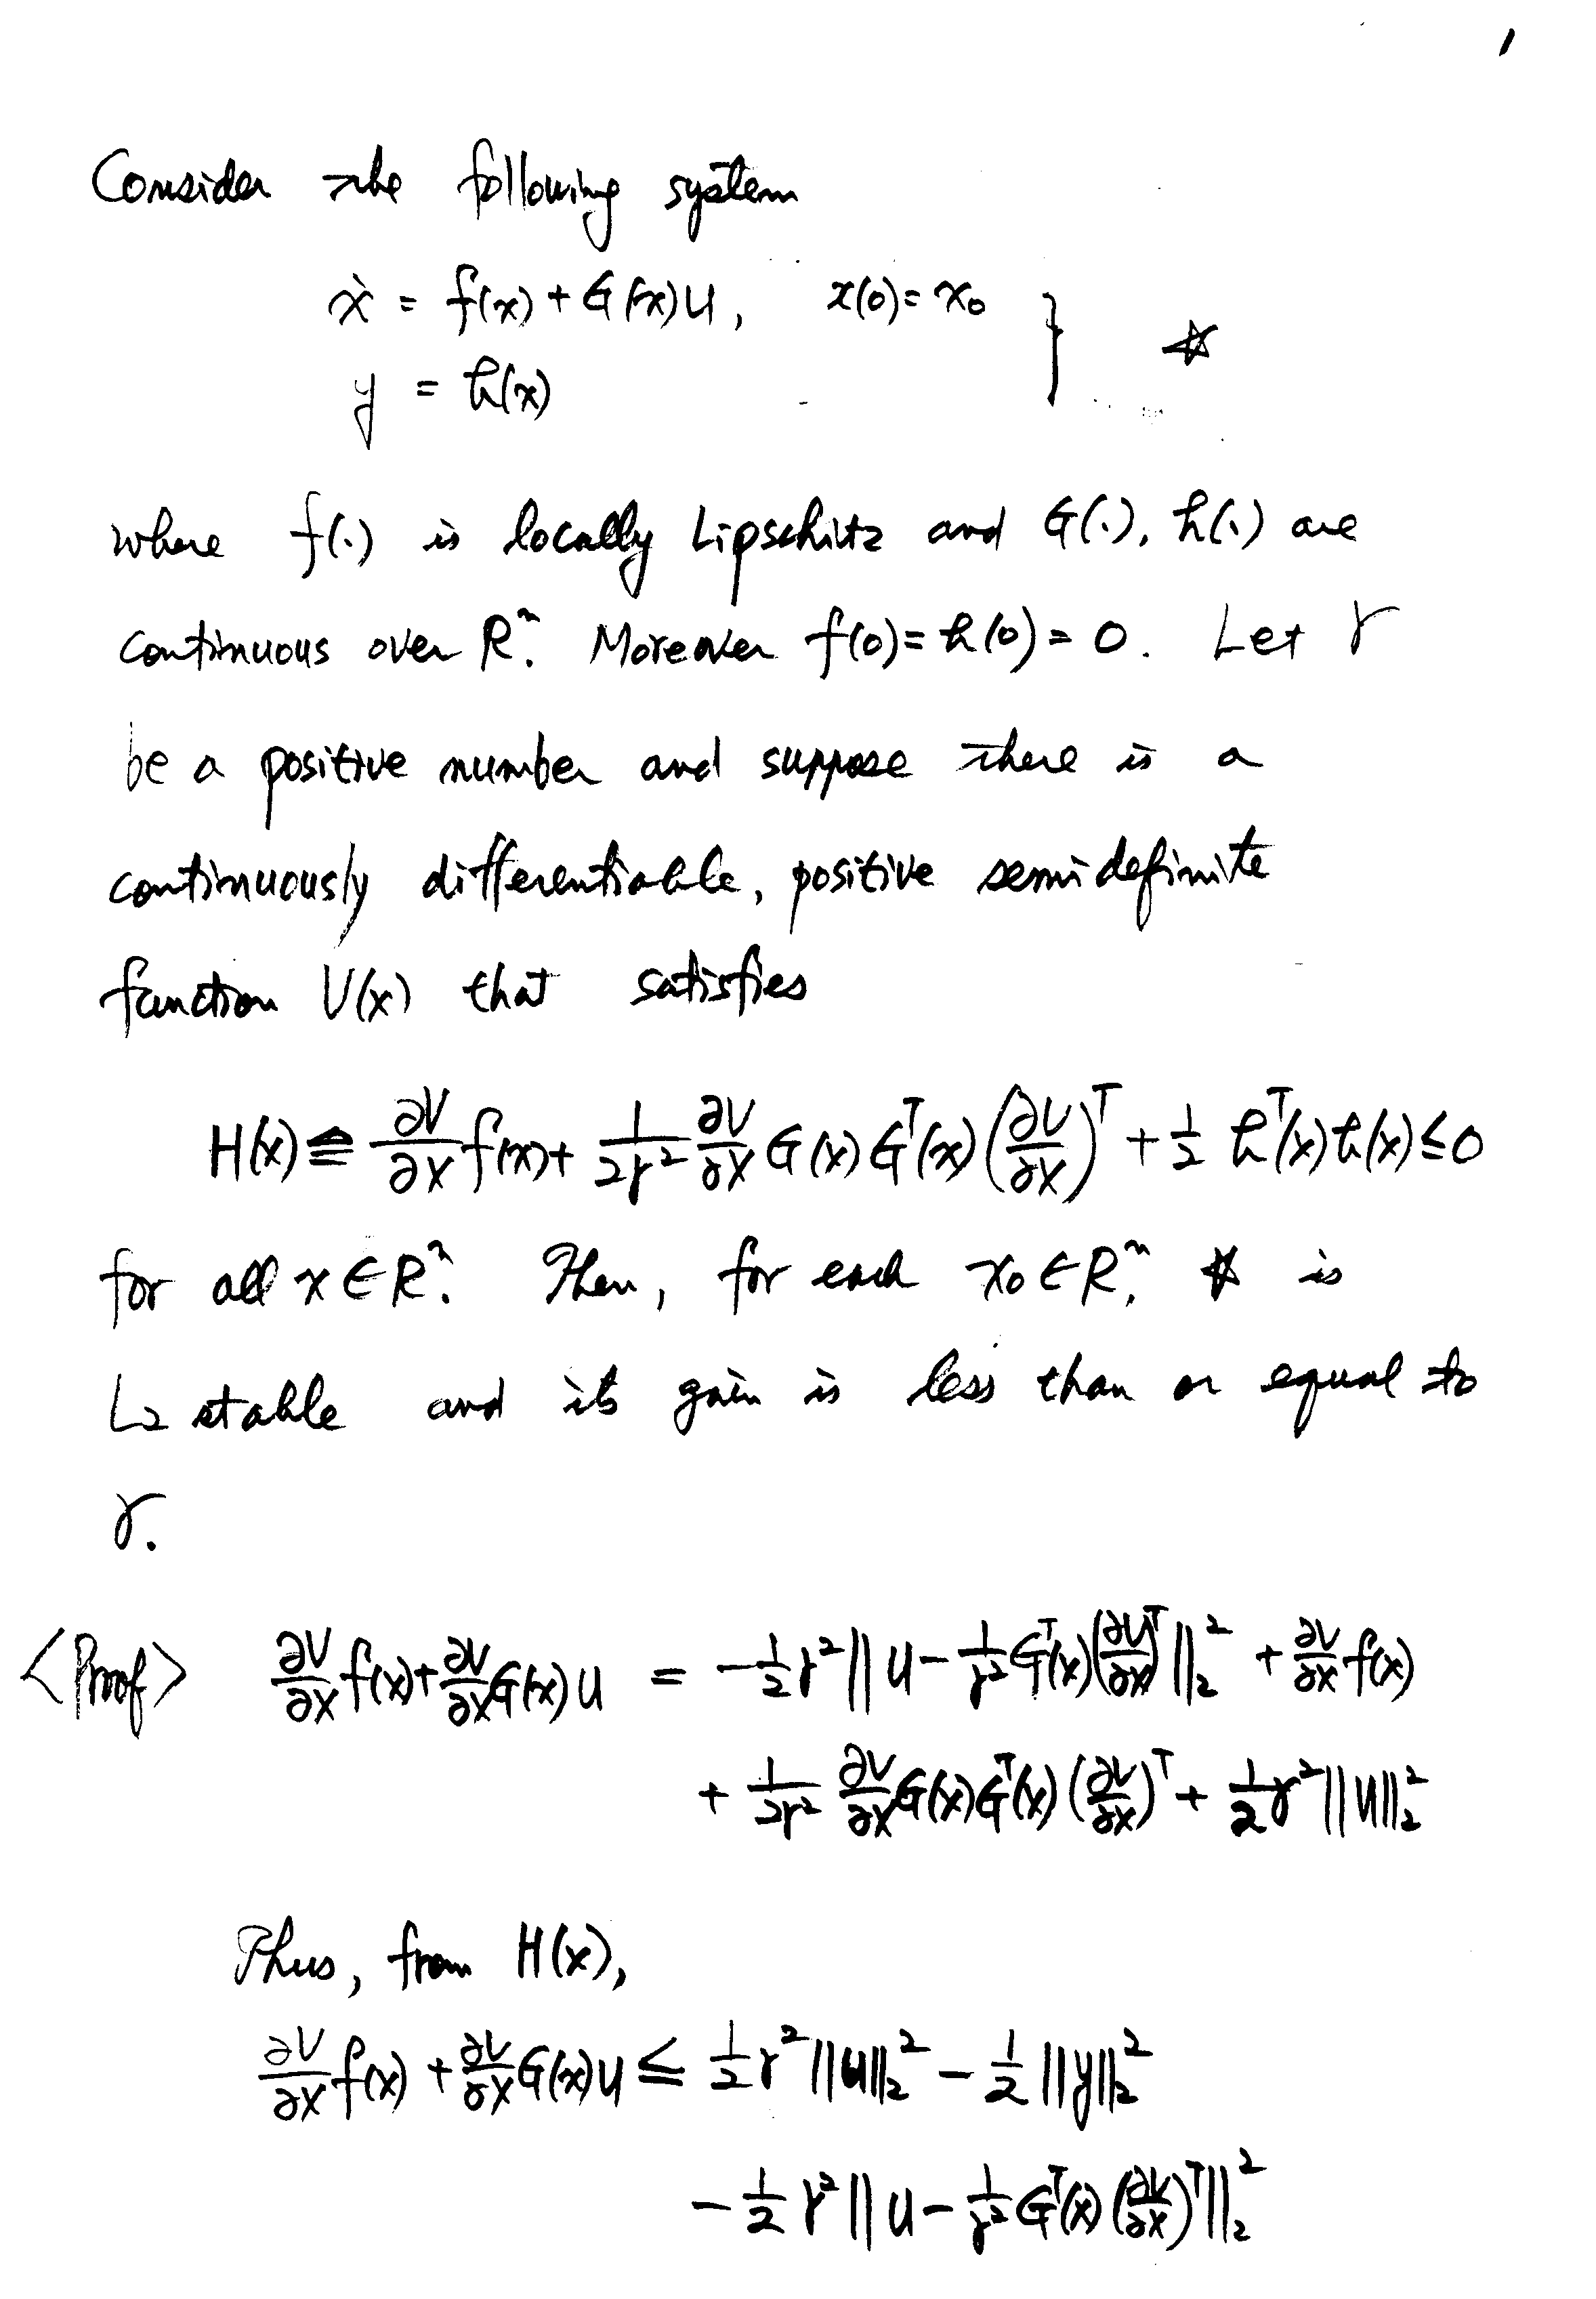 1
Consider the following system
ẋ = f(x) + G(x)u, x(0) = x₀
y = h(x) } ☆
where f(·) is locally Lipschitz and G(·), h(·) are
continuous over Rⁿ. Moreover f(0) = h(0) = 0. Let γ
be a positive number and suppose there is a
continuously differentiable, positive semidefinite
function V(x) that satisfies
H(x) ≙ ∂V/∂x f(x) + 1/(2γ²) ∂V/∂x G(x) Gᵀ(x) (∂V/∂x)ᵀ + 1/2 hᵀ(x) h(x) ≤ 0
for all x ∈ Rⁿ. Then, for each x₀ ∈ Rⁿ, ☆ is
L₂ stable and its gain is less than or equal to
γ.
<Proof> ∂V/∂x f(x) + ∂V/∂x G(x) u = -1/2 γ² ‖u - 1/γ² Gᵀ(x) (∂V/∂x)ᵀ‖₂² + ∂V/∂x f(x)
+ 1/(2γ²) ∂V/∂x G(x) Gᵀ(x) (∂V/∂x)ᵀ + 1/2 γ² ‖u‖₂²
Thus, from H(x),
∂V/∂x f(x) + ∂V/∂x G(x) u ≤ 1/2 γ² ‖u‖₂² - 1/2 ‖y‖₂²
- 1/2 γ² ‖u - 1/γ² Gᵀ(x) (∂V/∂x)ᵀ‖₂²